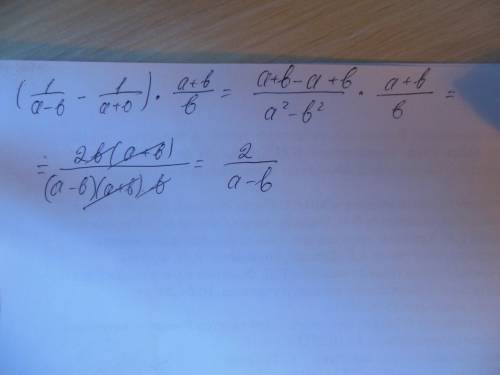 (1/(a-b) - 1/(a+b)) · (a+b)/b = (a+b-a+b)/(a²-b²) · (a+b)/b =
= 2b(a+b)/((a-b)(a+b)b) = 2/(a-b)